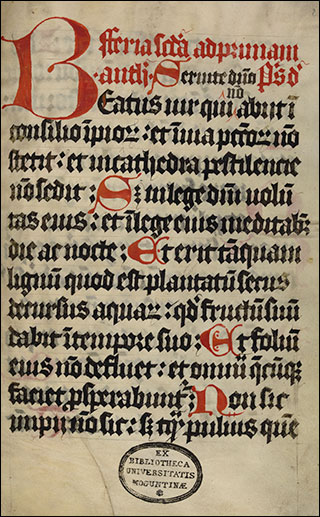 fferia sc̄da ad primam
antħ. Seruite dn̄o Ps̄ d̄
no
BEatus uir qui abiit ī
consilio īpior̄: et ī uia pc̄cor̄ nō
stetit: et in cathedra pestilencie
nō sedit: S; in lege dn̄i volū
tas eius: et ī lege eius meditab;
die ac nocte: Et erit tāquam
lignū quod est plantatū secus
decursus aquar̄: qd̄ fructū suū
dabit ī tempore suo: Et foliū
eius nō defluet: et omīa q̄cūq;
faciet p̄sperabunt: Non sic
īmpij nō sic: puluis quē
EX
BIBLIOTHECA
UNIVERSITATIS
MOGUNTINÆ